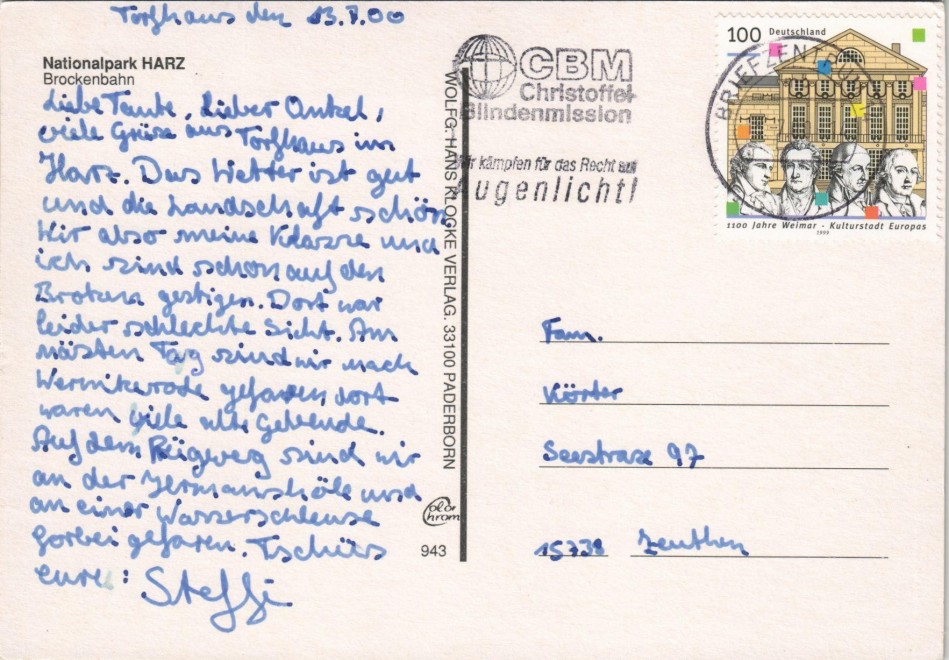 Torfhaus den 13.7.00
Nationalpark HARZ
Brockenbahn
Liebe Tante, lieber Onkel,
viele Grüse aus Torfhaus im
Hartz. Das Wetter ist gut
und die Landschaft schön.
Wir also meine Klasse und
ich sind schon auf den
Broken gestigen. Dort war
leider schlechte Sicht. Am
nästen Tag sind wir nach
Wernikerode gefaren dort
waren viele alte Gebeude.
Auf dem Rügweg sind wir
an der Hermanshöle und
an einer Wasserschleuse
forbei gefaren. Tschüss
eure: Steffi
WOLFG. HANS KLOCKE VERLAG. 33100 PADERBORN
943
CBM
Christoffel-
Blindenmission
Wir kämpfen für das Recht auf
Augenlicht!
BRIEFZENTRUM
100 Deutschland
1100 Jahre Weimar - Kulturstadt Europas
1999
Fam.
Körter
Seestrase 97
15738 Zeuthen